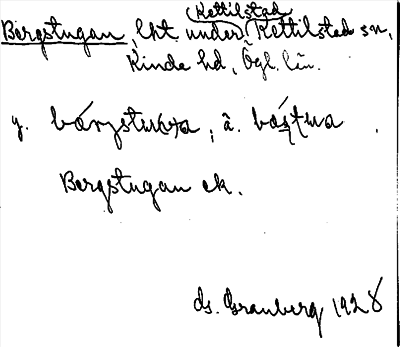 Kettilstad
Bergstugan, lht. under Kettilstad sn,
Kinda hd, Ögl. län.
y. bárgstuwa, ä. bástua.
Bergstugan ek.
ds. Granberg 1928